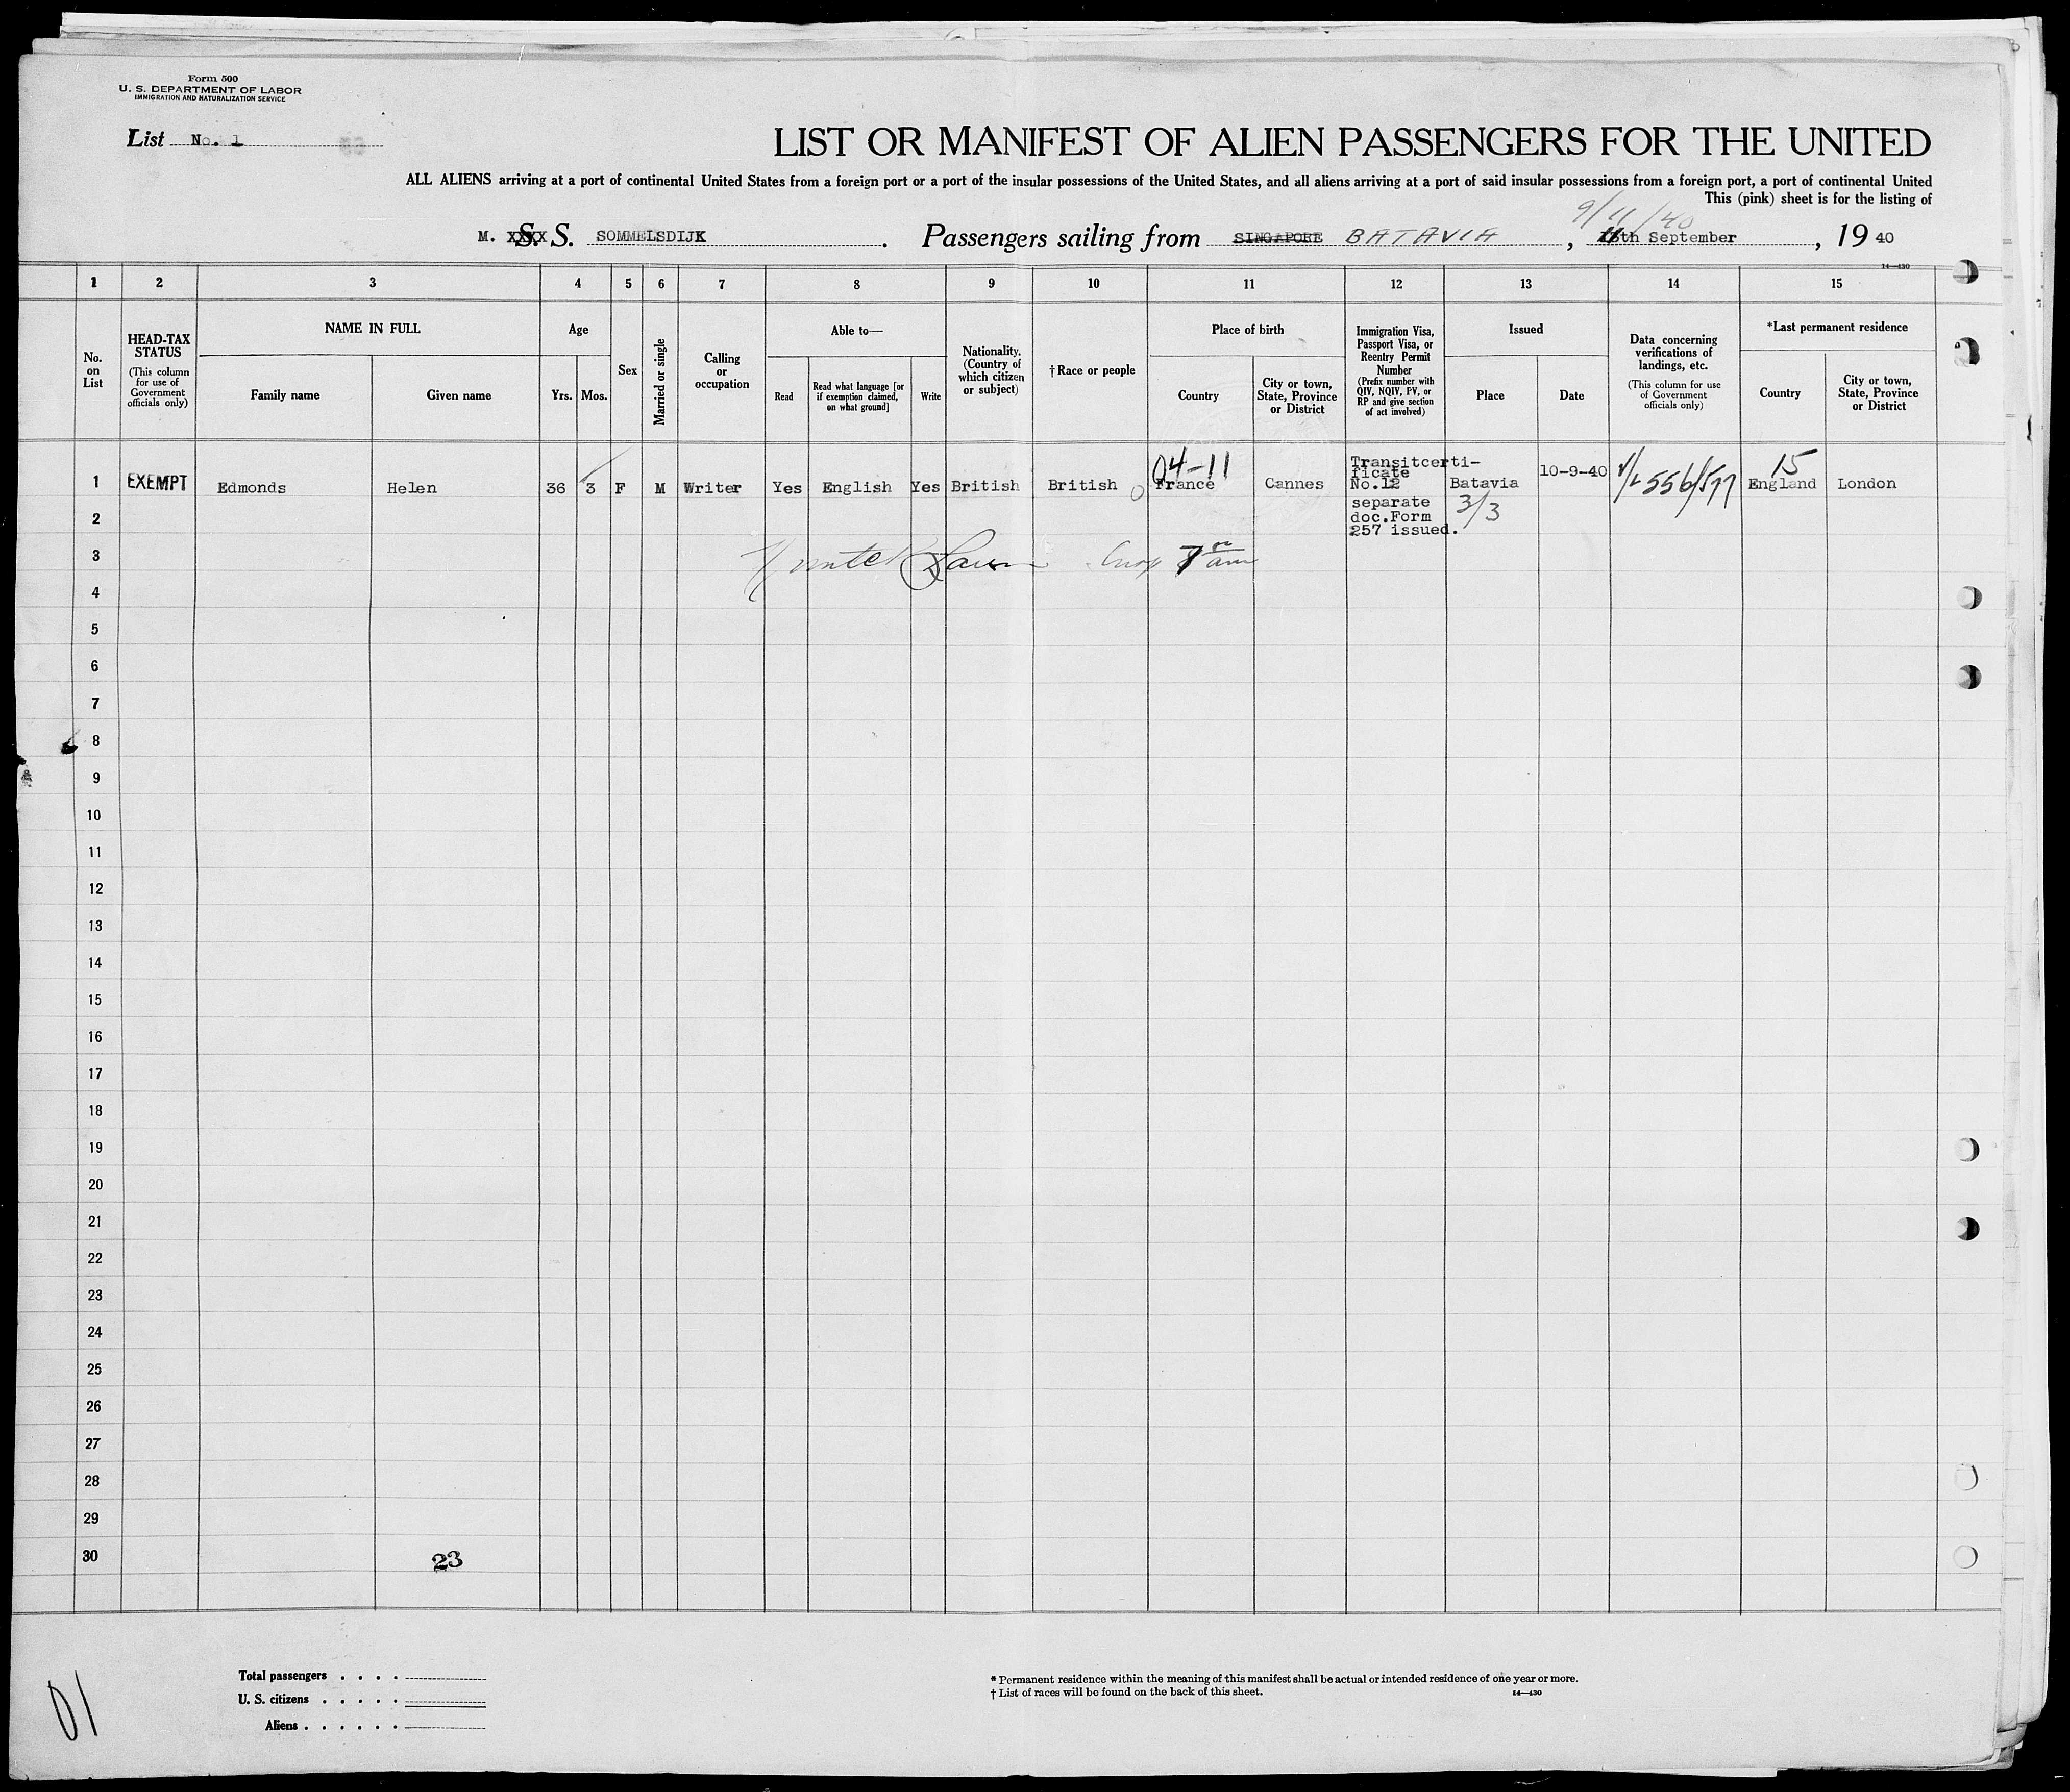 Form 500
U. S. DEPARTMENT OF LABOR
IMMIGRATION AND NATURALIZATION SERVICE
List No. 1
LIST OR MANIFEST OF ALIEN PASSENGERS FOR THE UNITED
ALL ALIENS arriving at a port of continental United States from a foreign port or a port of the insular possessions of the United States, and all aliens arriving at a port of said insular possessions from a foreign port, a port of continental United
This (pink) sheet is for the listing of
9/11/40
M. XXXX S. S. SOMMELSDIJK . Passengers sailing from SINGAPORE BATAVIA , th September , 19 40
14—430
1 2 3 4 5 6 7 8 9 10 11 12 13 14 15
No. on List
HEAD-TAX STATUS
(This column for use of Government officials only)
NAME IN FULL
Family name
Given name
Age
Yrs. Mos.
Sex
Married or single
Calling or occupation
Able to—
Read
Read what language [or if exemption claimed, on what ground]
Write
Nationality. (Country of which citizen or subject)
† Race or people
Place of birth
Country
City or town, State, Province or District
Immigration Visa, Passport Visa, or Reentry Permit Number
(Prefix number with QIV, NQIV, PV, or RP and give section of act involved)
Issued
Place
Date
Data concerning verifications of landings, etc.
(This column for use of Government officials only)
*Last permanent residence
Country
City or town, State, Province or District
04-11
15
1 EXEMPT Edmonds Helen 36 3 F M Writer Yes English Yes British British France Cannes Transitcertificate No.12 Batavia 10-9-40 V/L 556/577 England London
separate
doc.Form
257 issued.
3/3
2
3
4
5
6
7
8
9
10
11
12
13
14
15
16
17
18
19
20
21
22
23
24
25
26
27
28
29
30
23
Total passengers . . . .
U. S. citizens . . . . .
Aliens . . . . . .
* Permanent residence within the meaning of this manifest shall be actual or intended residence of one year or more.
† List of races will be found on the back of this sheet.
14—430
01